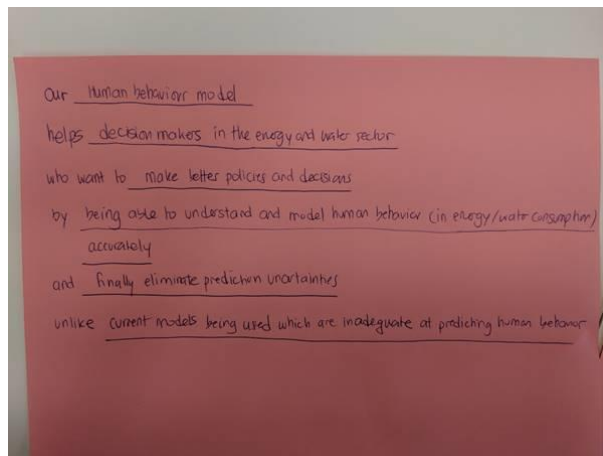 our Human behaviour model
helps decision makers in the energy and water sector
who want to make better policies and decisions
by being able to understand and model human behavior (in energy/water consumption)
accurately
and finally eliminate prediction uncertainties
unlike current models being used which are inadequate at predicting human behavior